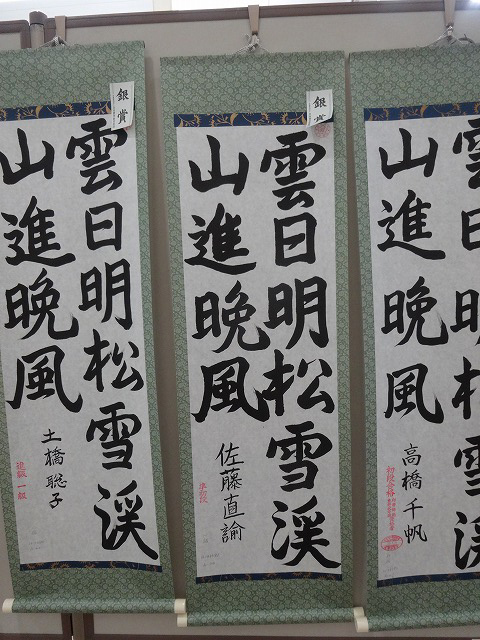 銀賞
雲日明松雪渓
山進晩風
土橋聡子
進級 一級
銀賞
雲日明松雪渓
山進晩風
佐藤直諭
準初段
雲日明松雪渓
山進晩風
高橋千帆
初段合格